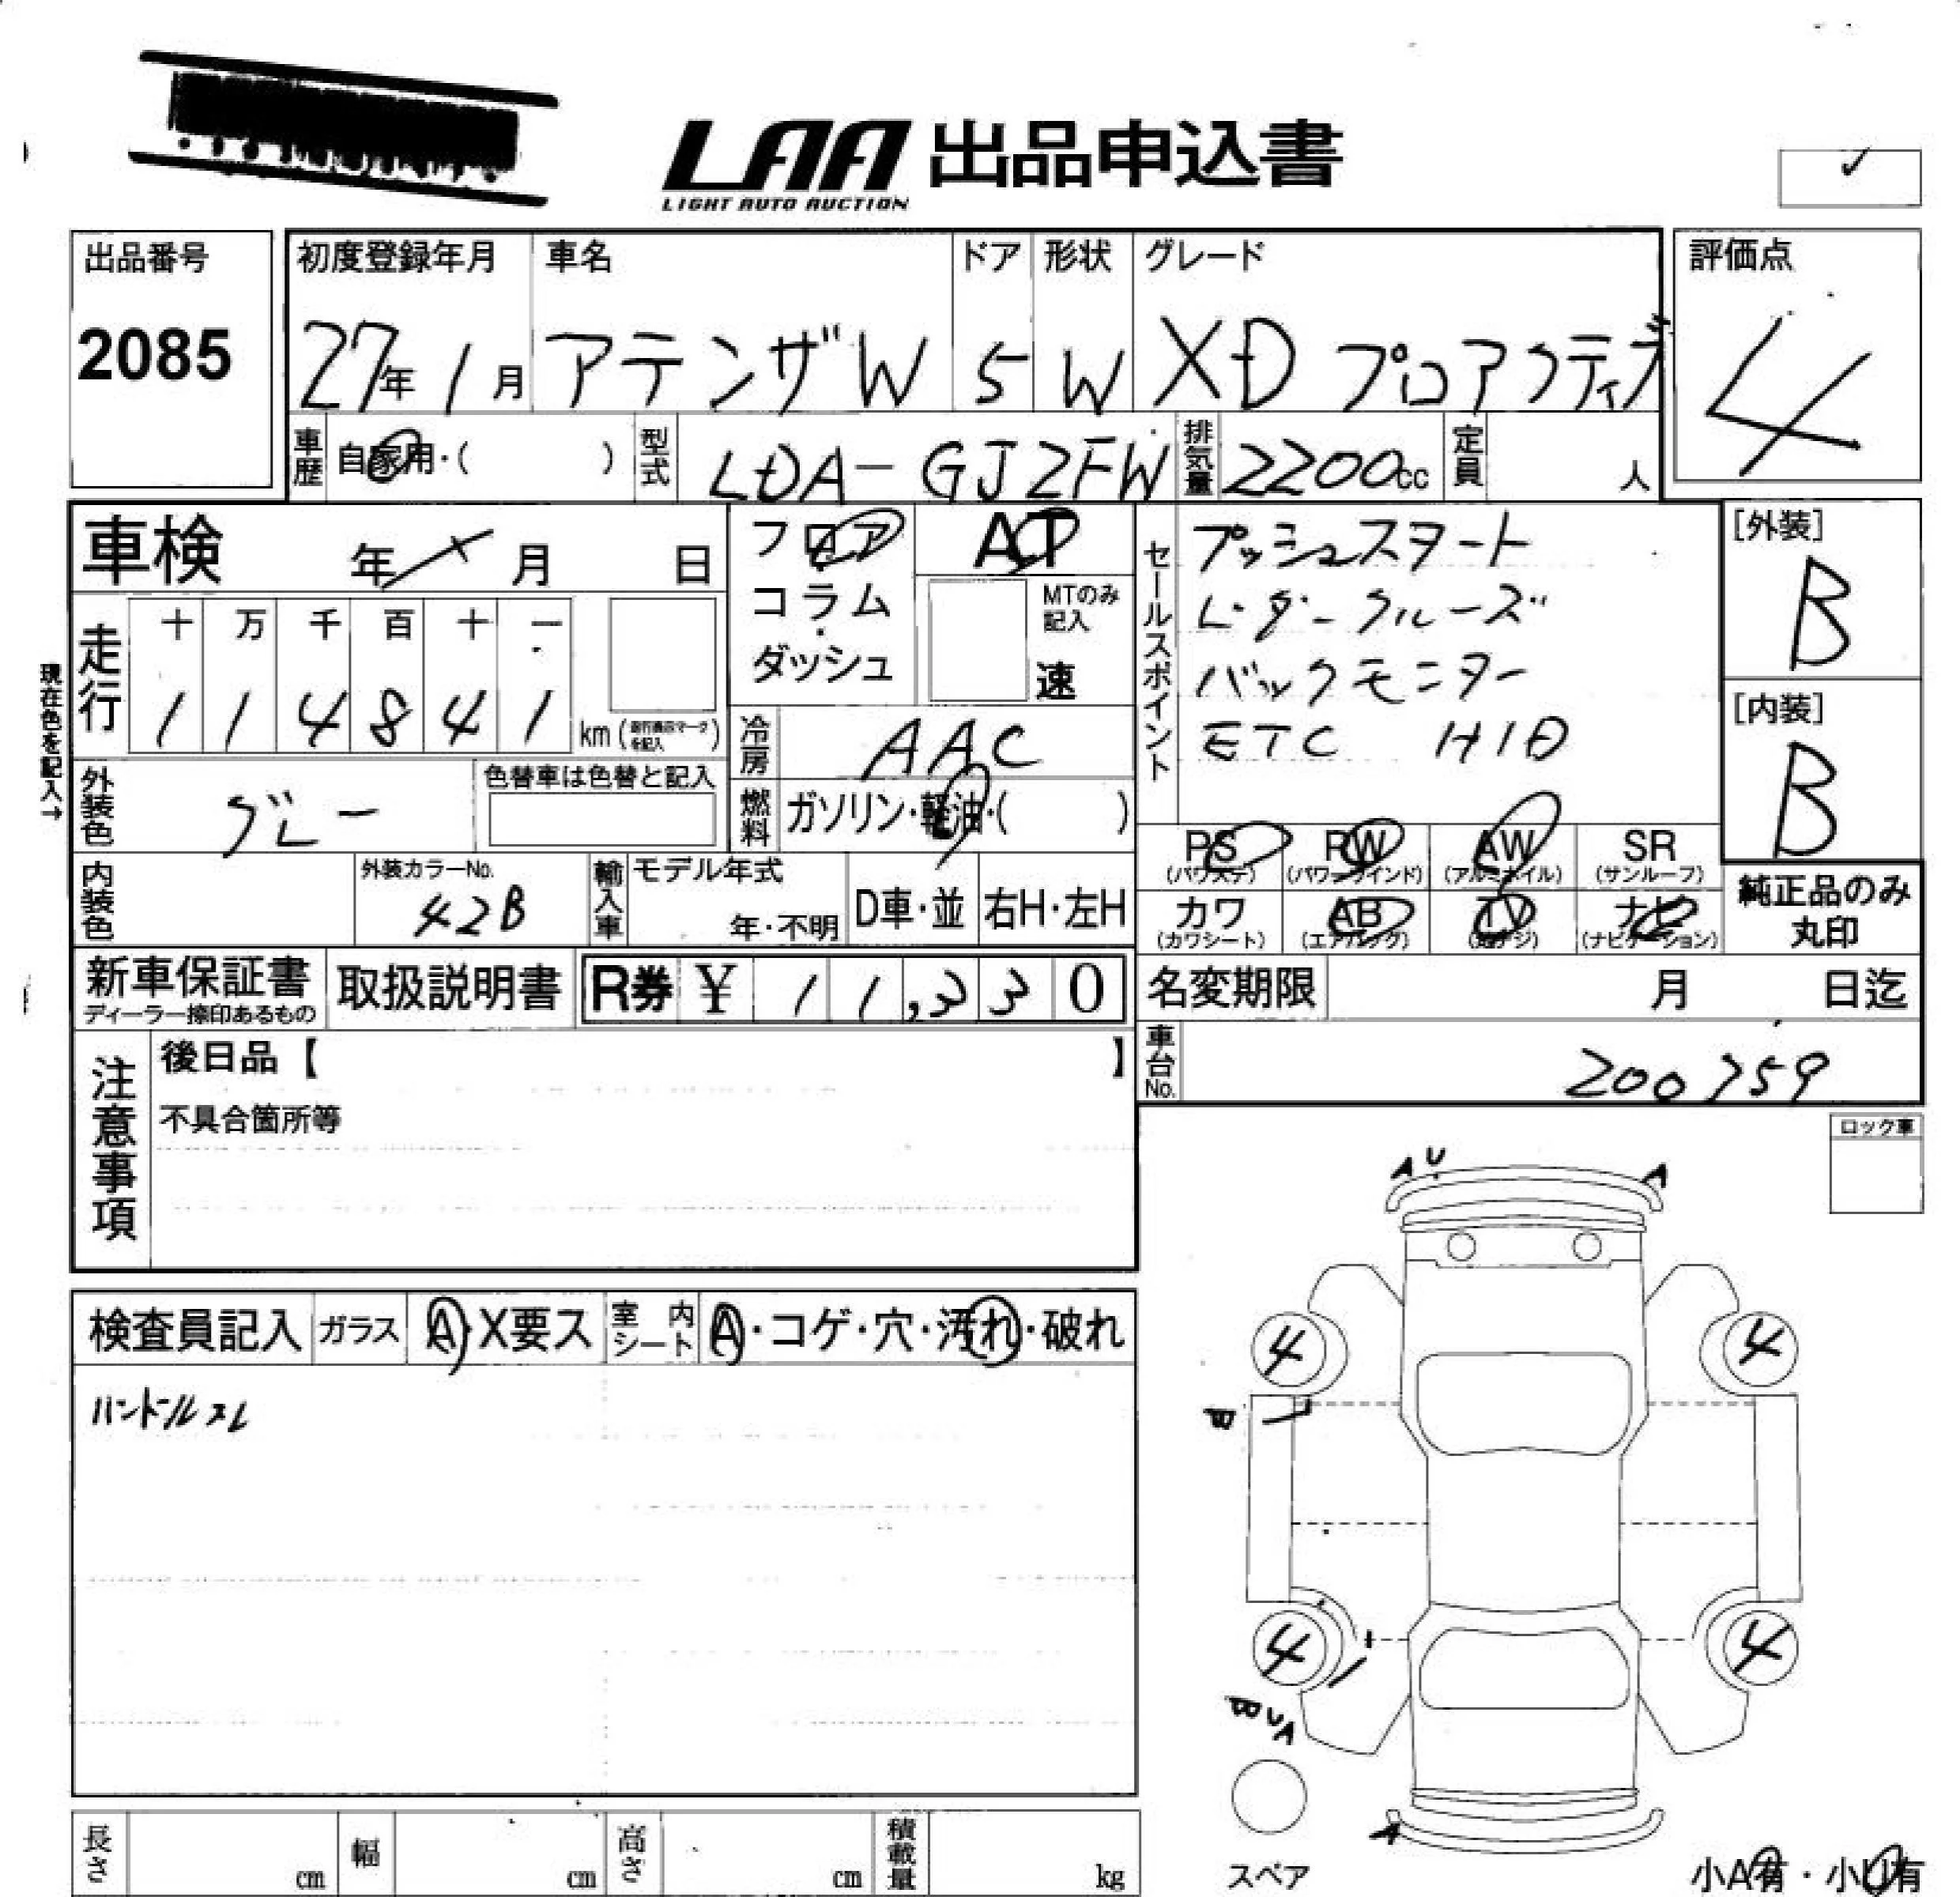 LAA 出品申込書
LIGHT AUTO AUCTION
出品番号
2085
初度登録年月
27年1月
車名
アテンザW
ドア
5
形状
W
グレード
XD プロアクティブ
評価点
4
車歴
自家用・( )
型式
LDA-GJ2FW
排気量
2200cc
定員
人
車検 年 月 日
フロア
コラム
・
ダッシュ
AT
MTのみ記入
速
セールスポイント
プッシュスタート
レーダークルーズ
バックモニター
ETC HID
[外装]
B
[内装]
B
現在色を記入→
走行
十 万 千 百 十 一
1 1 4 8 4 1
km( を記入)
冷房
AAC
外装色
グレー
色替車は色替と記入
燃料
ガソリン・軽油・( )
PS
(パワステ)
PW
(パワーウインド)
AW
(アルミホイル)
SR
(サンルーフ)
カワ
(カワシート)
AB
(エアバッグ)
TV
ナビ
(ナビゲーション)
純正品のみ
丸印
内装色
外装カラーNo.
42B
輸入車
モデル年式
年・不明
D車・並
右H・左H
新車保証書
ディーラー捺印あるもの
取扱説明書
R券 ¥ 11,330
名変期限
月 日迄
車台No.
200759
注意事項
後日品【 】
不具合箇所等
ロック車
A U
A
検査員記入
ガラス
A・X要ス
室内シート
A・コゲ・穴・汚れ・破れ
ハンドルスレ
4
4
B
4
4
B
U A
A
スペア
長さ
cm
幅
cm
高さ
cm
積載量
kg
小A有・小U有